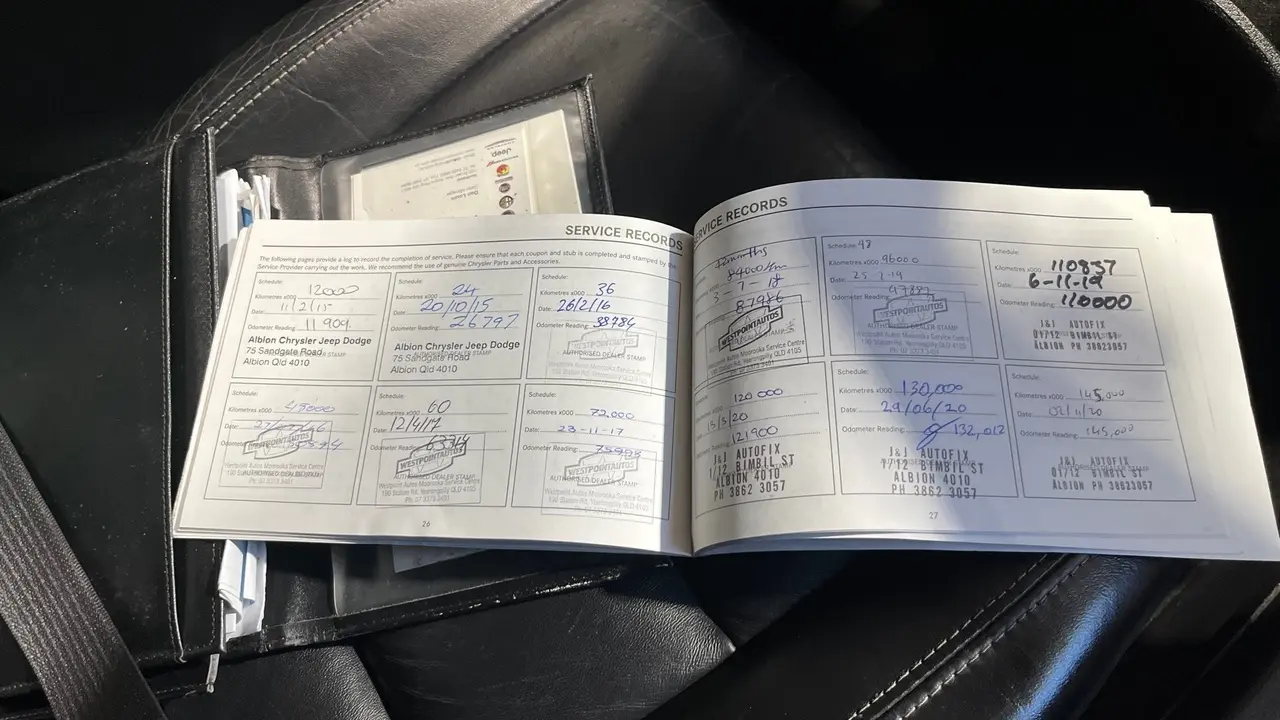 SERVICE RECORDS
The following pages provide a log to record the completion of service. Please ensure that each coupon and stub is completed and stamped by the
Service Provider carrying out the work. We recommend the use of genuine Chrysler Parts and Accessories.
Schedule:
Kilometres x000 12000
Date: 11/2/15
Odometer Reading: 11 909
Albion Chrysler Jeep Dodge
75 Sandgate Road
Albion Qld 4010
Schedule:
Kilometres x000 24
Date: 20/10/15
Odometer Reading: 26797
Albion Chrysler Jeep Dodge
75 Sandgate Road
Albion Qld 4010
Schedule:
Kilometres x000 36
Date: 26/2/16
Odometer Reading: 38984
AUTHORISED DEALER STAMP
Schedule:
Kilometres x000 48000
Date:
Odometer Reading:
WESTPOINTAUTOS
Westpoint Autos Moorooka Service Centre
AUTHORISED DEALER STAMP
Schedule:
Kilometres x000 60
Date: 12/4/17
Odometer Reading: 63314
WESTPOINTAUTOS
AUTHORISED DEALER STAMP
Westpoint Autos Moorooka Service Centre
Schedule:
Kilometres x000 72,000
Date: 23-11-17
Odometer Reading:
WESTPOINTAUTOS
AUTHORISED DEALER STAMP
Westpoint Autos Moorooka Service Centre
26
SERVICE RECORDS
84000km
3-7-18
87986
WESTPOINTAUTOS
Westpoint Autos Moorooka Service Centre
Schedule: 48
Kilometres x000 96000
Date: 25-7-19
Odometer Reading:
WESTPOINTAUTOS
AUTHORISED DEALER STAMP
Schedule:
Kilometres x000 110837
Date: 6-11-19
Odometer Reading: 110000
J&J AUTOFIX
U1/12 BIMBIL ST
ALBION PH 38623057
120 000
13/3/20
121900
J&J AUTOFIX
1/12 BIMBIL ST
ALBION 4010
PH 3862 3057
Schedule:
Kilometres x000 130,000
Date: 29/06/20
Odometer Reading: 132,012
J&J AUTOFIX
1/12 BIMBIL ST
ALBION 4010
PH 3862 3057
Schedule:
Kilometres x000 145,000
Date:
Odometer Reading: 145,000
J&J AUTOFIX
U1/12 BIMBIL ST
ALBION PH 38623057
27
Jeep